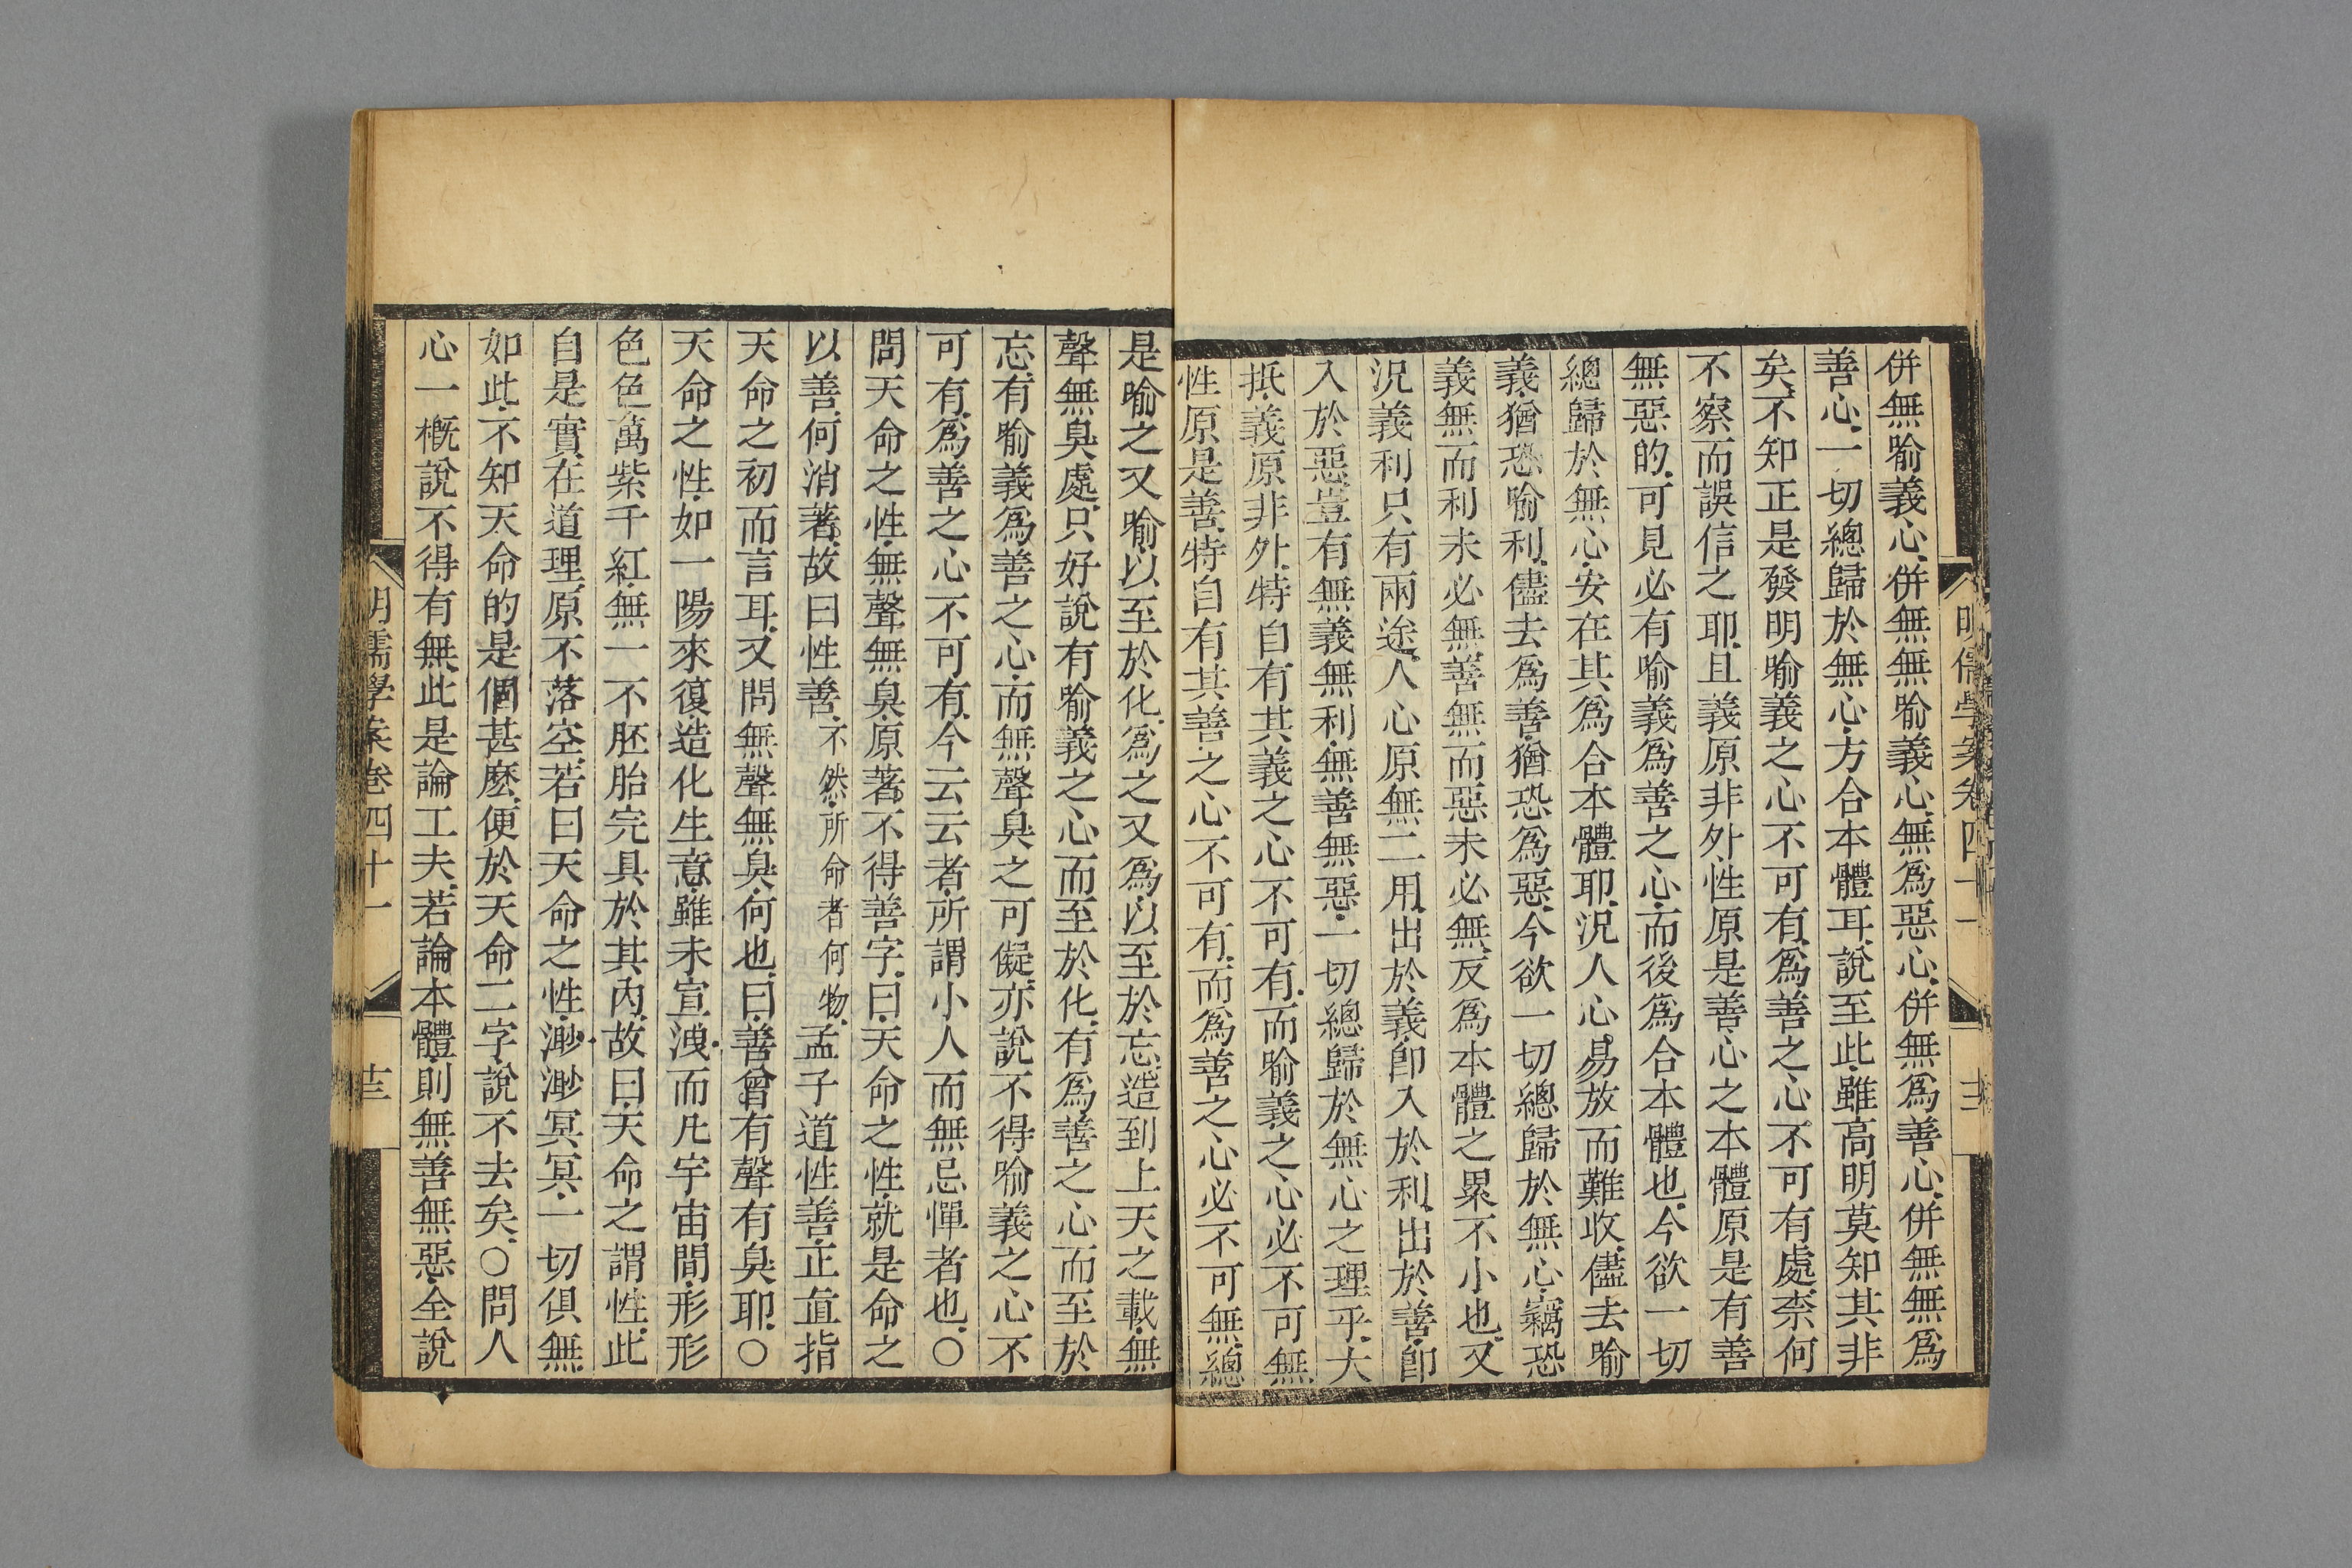 明儒學案卷四十一
併無喻義心、併無無喻義心、無爲惡心、併無爲善心、併無無爲
善心、一切總歸於無心、方合本體耳、說至此、雖高明莫知其非
矣、不知正是發明喻義之心不可有、爲善之心不可有處、柰何
不察而誤信之耶、且義原非外、性原是善、心之本體原是有善
無惡的、可見必有喻義爲善之心、而後爲合本體也、今欲一切
總歸於無心、安在其爲合本體耶、況人心易放而難收、儘去喻
義、猶恐喻利、儘去爲善、猶恐爲惡、今欲一切總歸於無心、竊恐
義無而利未必無、善無而惡未必無、反爲本體之累不小也、又
況義利只有兩途、人心原無二用、出於義、卽入於利、出於善、卽
入於惡、豈有無義無利、無善無惡、一切總歸於無心之理乎、大
抵、義原非外、特自有其義之心不可有、而喻義之心必不可無、
性原是善、特自有其善之心不可有、而爲善之心必不可無、總
是喻之又喻、以至於化、爲之又爲、以至於忘、造到上天之載、無
聲無臭處、只好說有喻義之心而至於化、有爲善之心而至於
忘、有喻義爲善之心、而無聲臭之可儗、亦說不得喻義之心不
可有、爲善之心不可有、今云云者、所謂小人而無忌憚者也、〇
問天命之性、無聲無臭、原著不得善字、曰、天命之性、就是命之
以善、何消著、故曰性善、不然、所命者何物、孟子道性善、正直指
天命之初而言耳、又問無聲無臭、何也、曰、善曾有聲有臭耶、〇
天命之性、如一陽來復、造化生意、雖未宣洩、而凡宇宙間、形形
色色萬紫千紅、無一不胚胎完具於其內、故曰、天命之謂性、此
自是實在道理、原不落空、若曰天命之性、渺渺冥冥、一切俱無、
如此、不知天命的是個甚麽、便於天命二字、說不去矣、〇問人
心一概說不得有無、此是論工夫、若論本體、則無善無惡、全說
明儒學案卷四十一